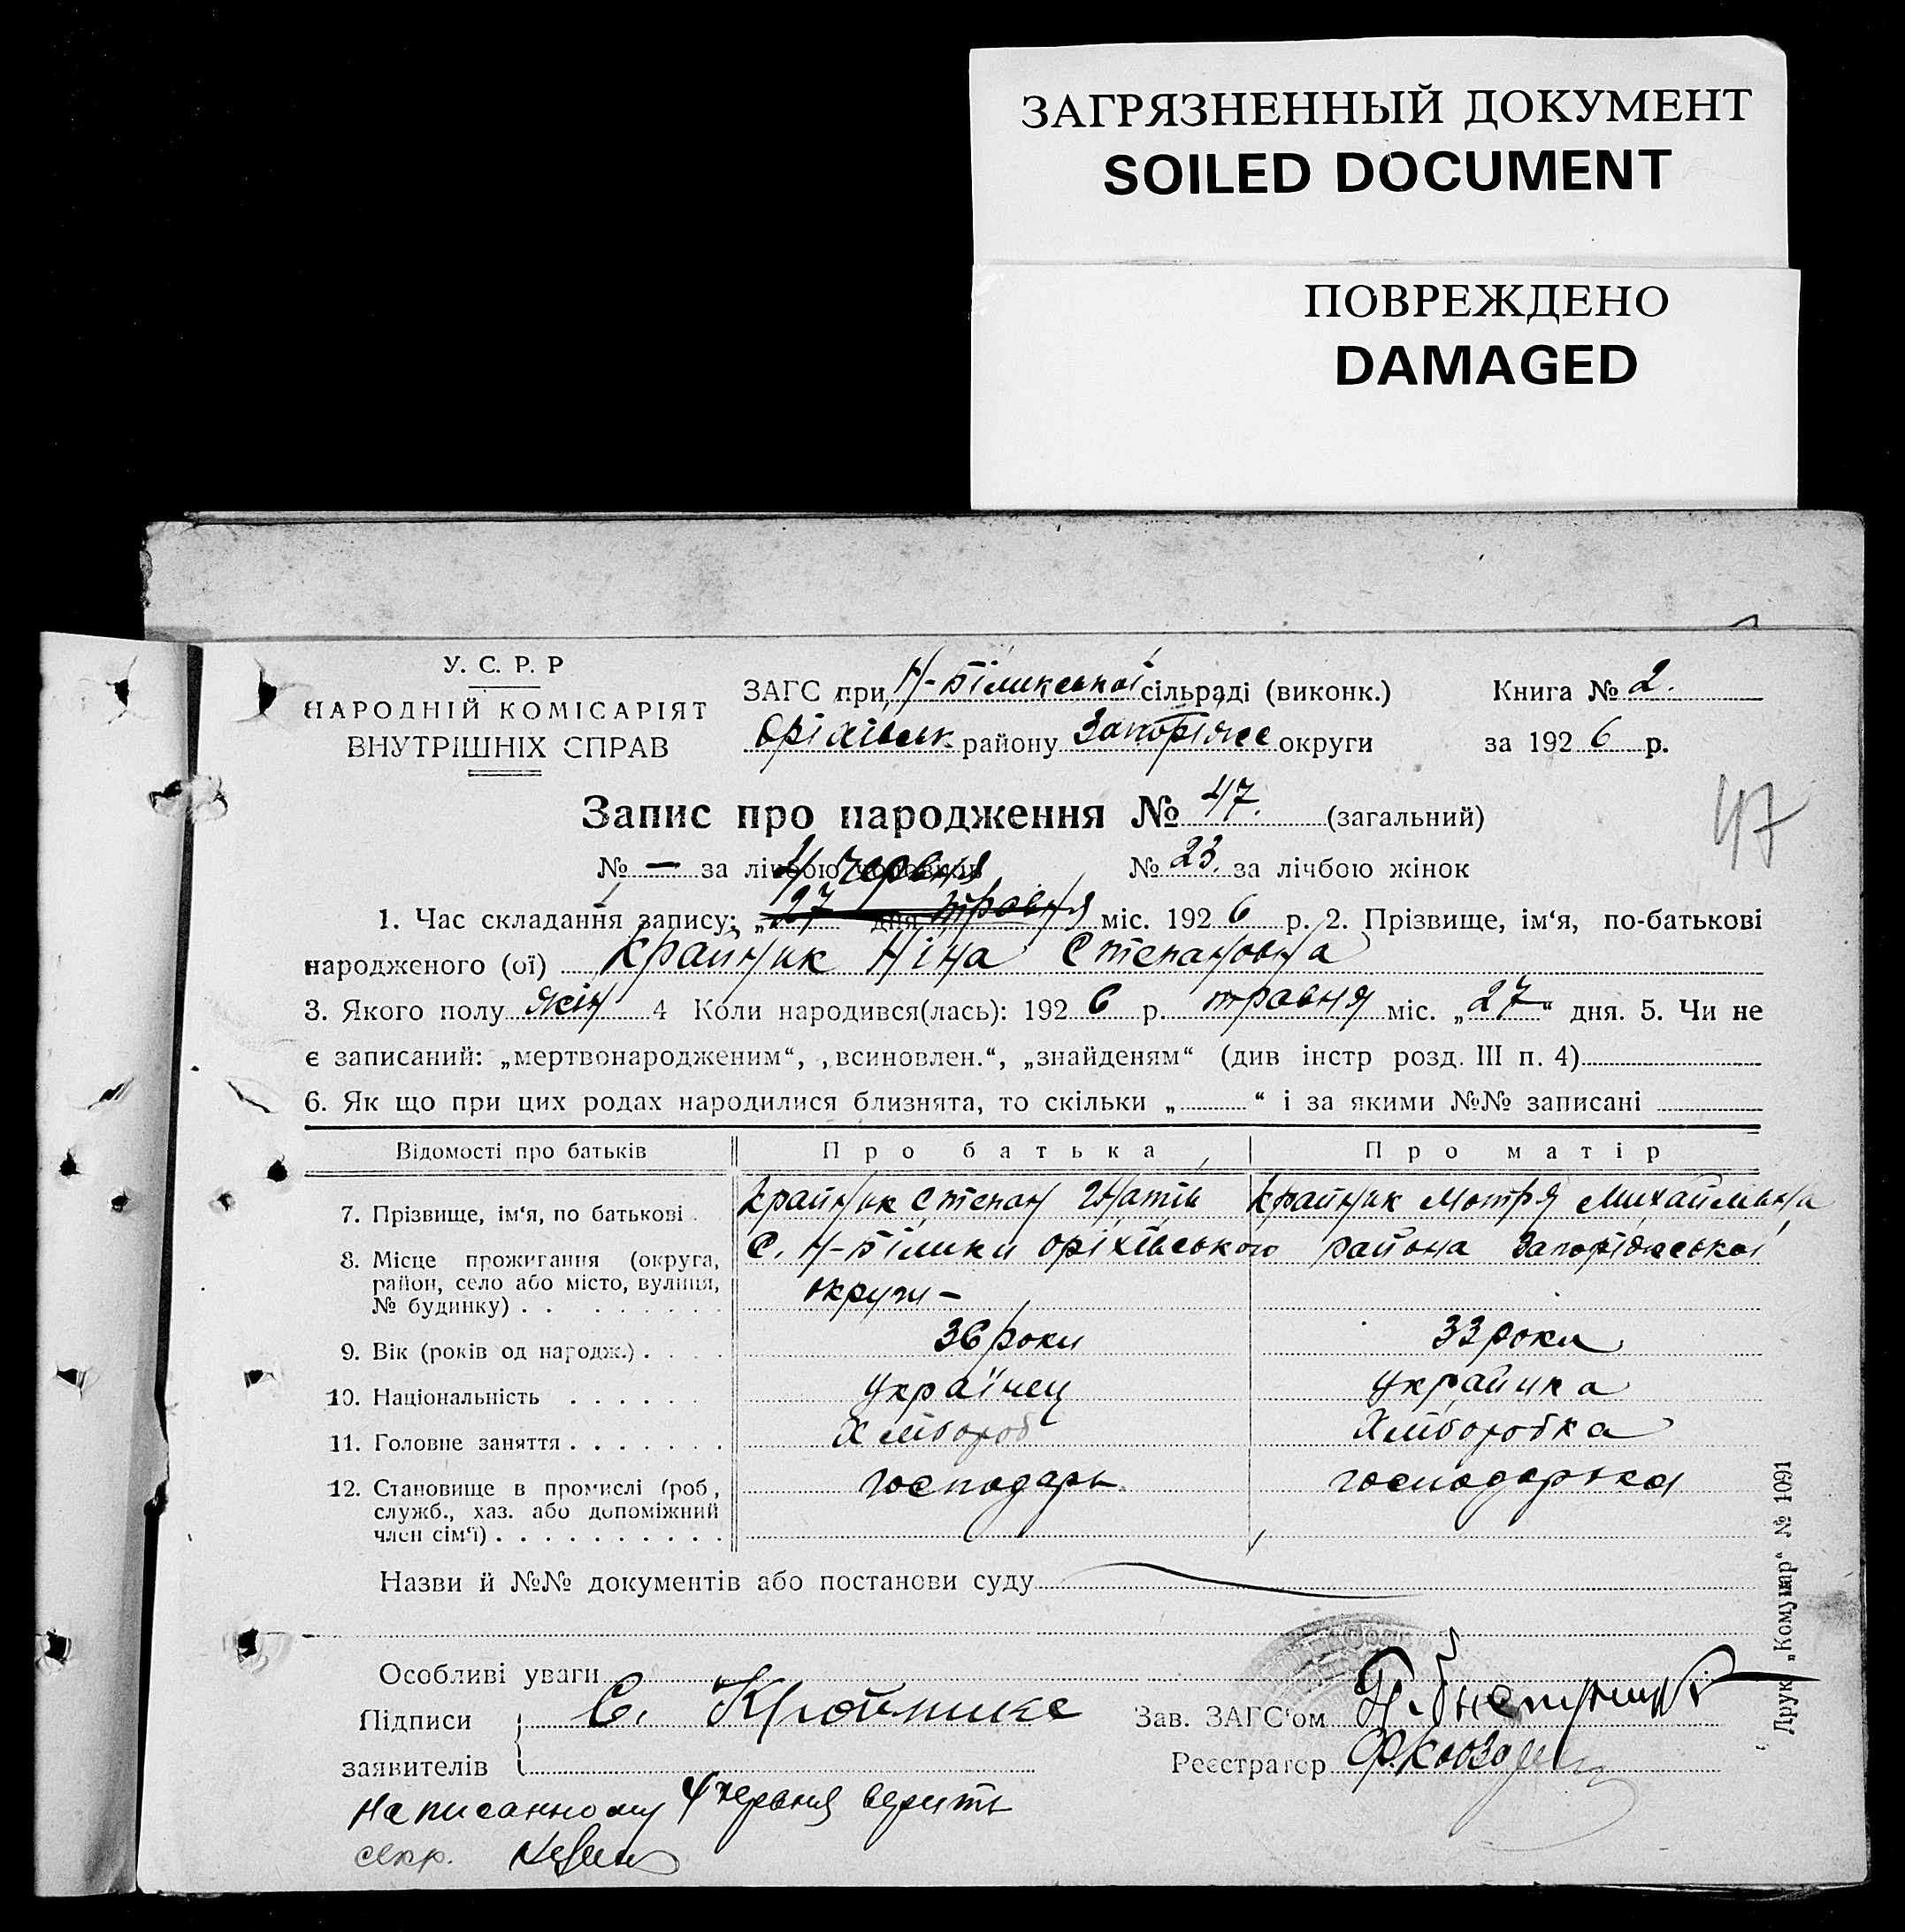 ЗАГРЯЗНЕННЫЙ ДОКУМЕНТ
SOILED DOCUMENT
ПОВРЕЖДЕНО
DAMAGED
У. С. Р. Р
НАРОДНІЙ КОМІСАРІЯТ
ВНУТРІШНІХ СПРАВ
ЗАГС при Н-Біликської сільраді (виконк.)
Оріхівськ. району Запоріжжє округи
Книга № 2.
за 1926 р.
47
Запис про народження № 47. (загальний)
№ — за лічбою чоловіків № 23. за лічбою жінок
4 червня
1. Час складання запису: „27 дня травня міс. 1926 р. 2. Прізвище, ім‘я, по-батькові
народженого (ої) Крайник Ніна Степановна
3. Якого полу жін 4 Коли народився(лась): 1926 р. травня міс. „27“ дня. 5. Чи не
є записаний: „мертвонародженим“, „всиновлен.“, „знайденям“ (див інстр розд. III п. 4)
6. Як що при цих родах народилися близнята, то скільки „ “ і за якими №№ записані
Відомості про батьків Про батька Про матір
7. Прізвище, ім‘я, по батькові Крайник Степан Гнатів Крайник Мотря Михайлівна
8. Місце прожигання (округа, С. Н-Білики Оріхівського района Запоріжської
район, село або місто, вулиця, округи —
№ будинку)
9. Вік (років од народж.) 36 роки 33 роки
10. Національність українец украинка
11. Головне заняття Хлібороб Хліборобка
12. Становище в промислі (роб., господарь господарька
служб., хаз. або допоміжний
член сім‘ї)
Назви й №№ документів або постанови суду
Особливі уваги
Підписи
заявителів
С. Крайнике
Зав. ЗАГС‘ом
Реєстратор
Написанному 4 червня верить
секр.
Друк. „Комунар“ № 1091